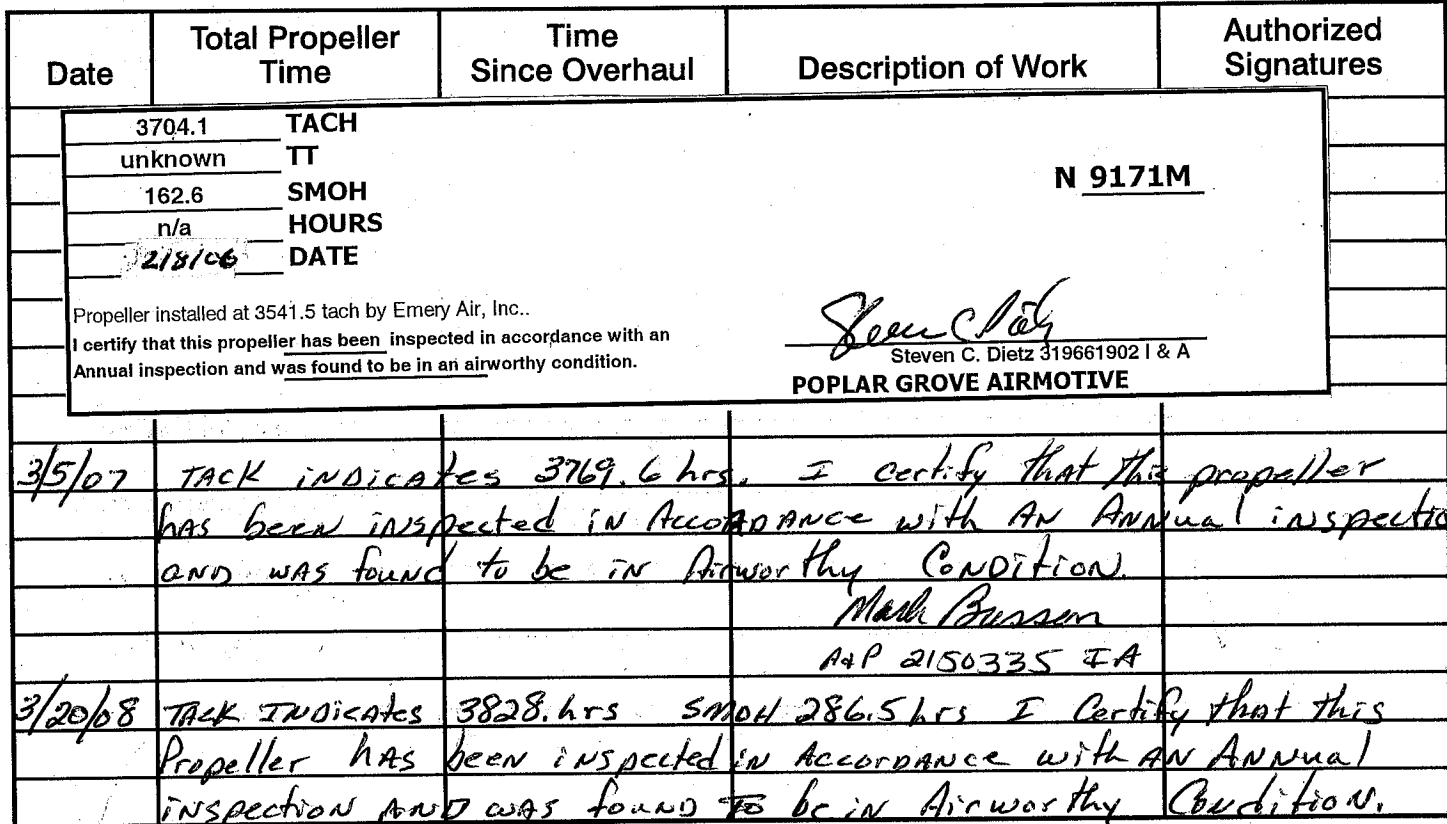 Date
Total Propeller Time
Time Since Overhaul
Description of Work
Authorized Signatures
3704.1 TACH
unknown TT
162.6 SMOH
n/a HOURS
2/8/06 DATE
N 9171M
Propeller installed at 3541.5 tach by Emery Air, Inc..
I certify that this propeller has been inspected in accordance with an
Annual inspection and was found to be in an airworthy condition.
Steven C. Dietz 319661902 I & A
POPLAR GROVE AIRMOTIVE
3/5/07 TACK INDICAtes 3769.6 hrs. I certify tHAt this propeller
hAS been INSpected IN AccorDANce with AN ANNual inspectio
AND WAS found to be IN Airworthy CoNDitioN.
Mark
A&P 2150335 IA
3/20/08 TACK INDicAtes 3828. hrs SMOH 286.5 hrs I Certify that this
Propeller hAs been iNspected IN AccorDANce with AN ANNual
iNspection AND was fouND To be iN Airworthy CoNditioN.